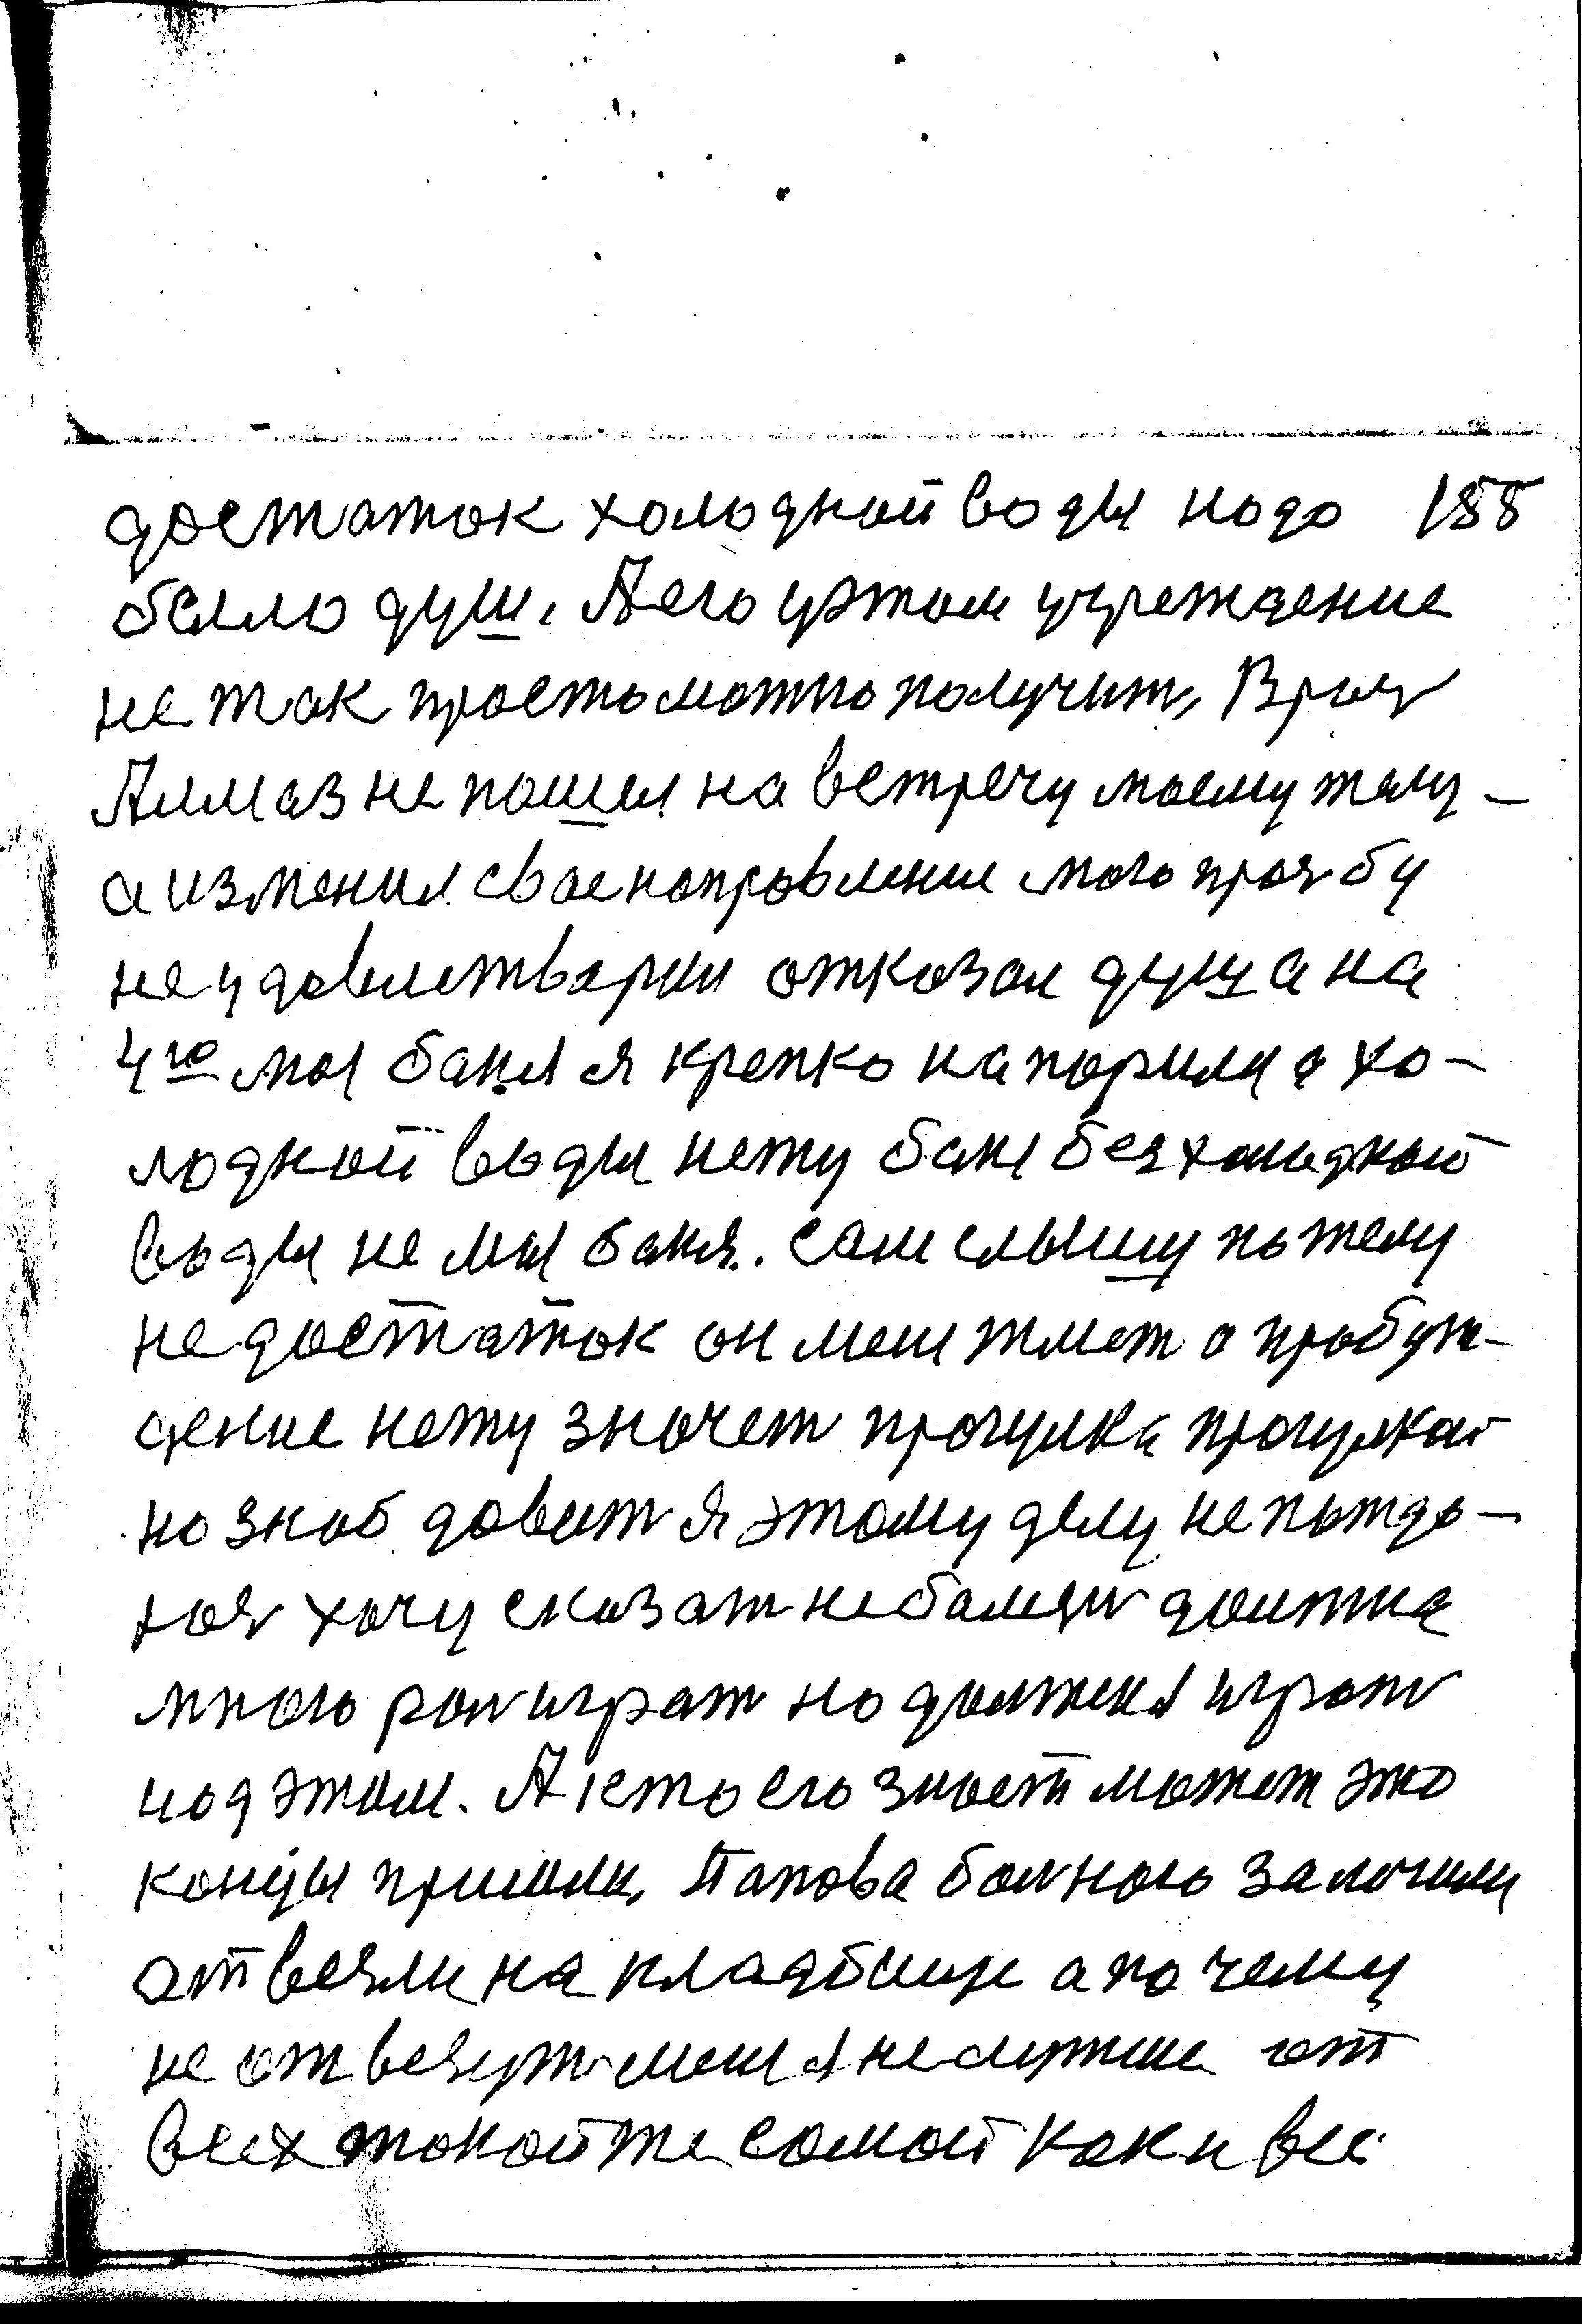 достаток холодной воды надо 155
было душ. А его у этом учреждение
не так просто можно получит, Врач
Алмаз не пошел на встречу моему телу –
а изменил свое направление мого прозбу
не удавлетварил отказал душа на
4го мая баня я крепко напарился а хо–
лодной воды нету баня без холодной
воды не мы баня. сам слышу по телу
недостаток он меня тмет а пробуж–
дение нету значет прогулка прогулкай
но зноб давит я этому делу не поддо–
юя хочу сказат не болезн долтна
мною рол играт но долтен я играт
над этом. А кто его знает может это
концы пришли, Папова болного залочили
атвезли на кладбище а почему
не отвезут меня я не лутше от
всех такой же самой как и все